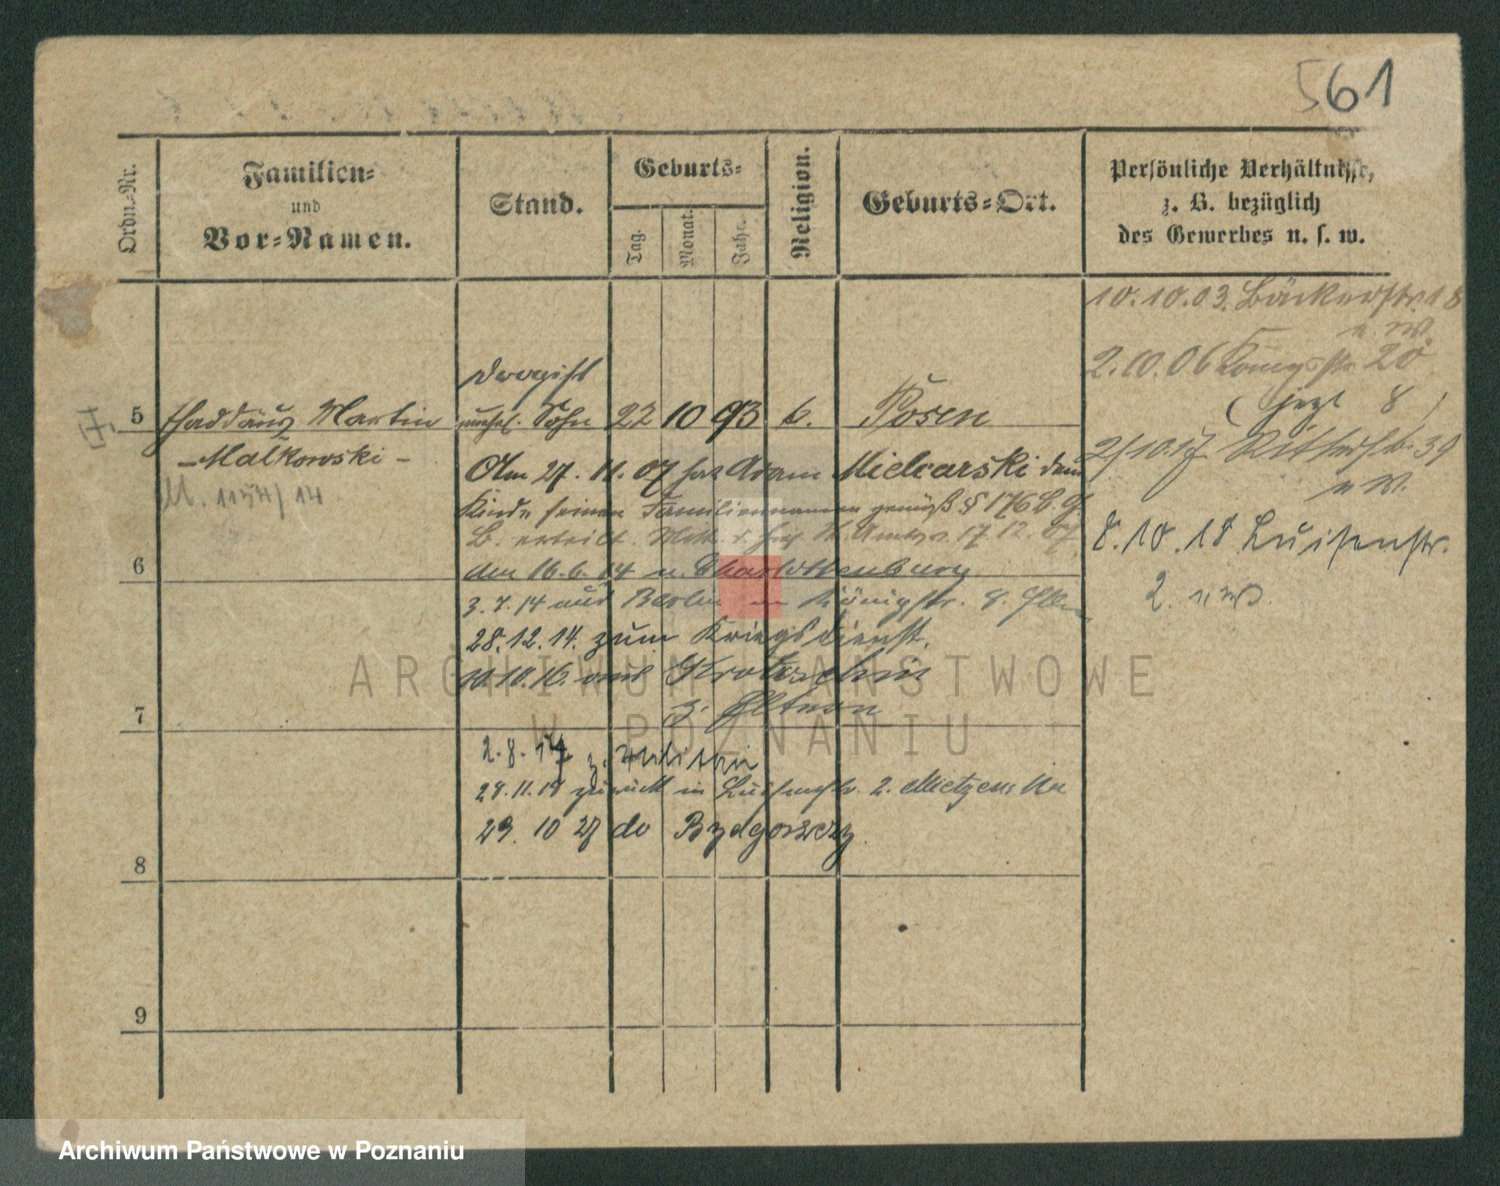 561
Ordn.-Nr.
Familien-
und
Vor-Namen.
Stand.
Geburts-
Tag.
Monat.
Jahr.
Religion.
Geburts-Ort.
Persönliche Verhältnisse,
z. B. bezüglich
des Gewerbes u. s. w.
10.10.03. Bäckerstr. 18
n. W.
2.10.06 Königstr. 20
(jezt 8)
2/10.17 Ritterstr. 39
n W.
8.10.18 Luisenstr.
2.
Drogist
5 Thaddäus Martin unehel. Sohn 22 10 93 k. Posen
- Malkowski -
M. 1154/14
Am 27. 11. 07 hat Adam Mielcarski dem
Kinde seinen Familiennamen gemäß § 1706 B. G.
B. erteilt. 17.12.07
6
den 16.6.14 n. Charlottenburg
3.7.14 aus Berlin in Königstr. 8. Eltern
28.12.14. zum Kriegsdienst.
10.10.16. aus Krotoschin
z. Eltern
7
2.8.17 z. Militär
29.11.18 zurück in Luisenstr. 2.
29. 10 27 do Bydgoszczy
8
9
ARCHIWUM PAŃSTWOWE
W POZNANIU
Archiwum Państwowe w Poznaniu